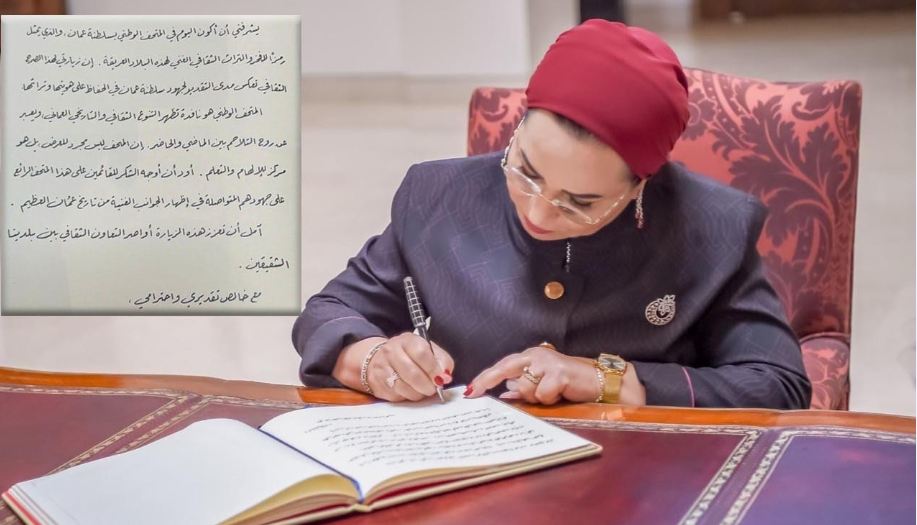 يشرفني أن أكون اليوم في المتحف الوطني بسلطنة عمان، والذي يمثل
رمزاً للفخر والتراث الثقافي الغني لهذه البلاد العريقة . إن زيارتي لهذا الصرح
الثقافي تعكس مدى التقدير لجهود سلطنة عمان في الحفاظ على هويتها وتراثها.
المتحف الوطني هو نافذة تظهر التنوع الثقافي والتاريخي العماني، ويعبر
عن روح التلاحم بين الماضي والحاضر. إن المتحف ليس مجرد للعرض، بل هو
مركز للإلهام والتعلم . أود أن أوجه الشكر للقائمين على هذا المتحف الرائع
على جهودهم المتواصلة في إظهار الجوانب الغنية من تاريخ عمان العظيم .
آمل أن تعزز هذه الزيارة أواصر التعاون الثقافي بين بلدينا
الشقيقين .
مع خالص تقديري واحترامي ،